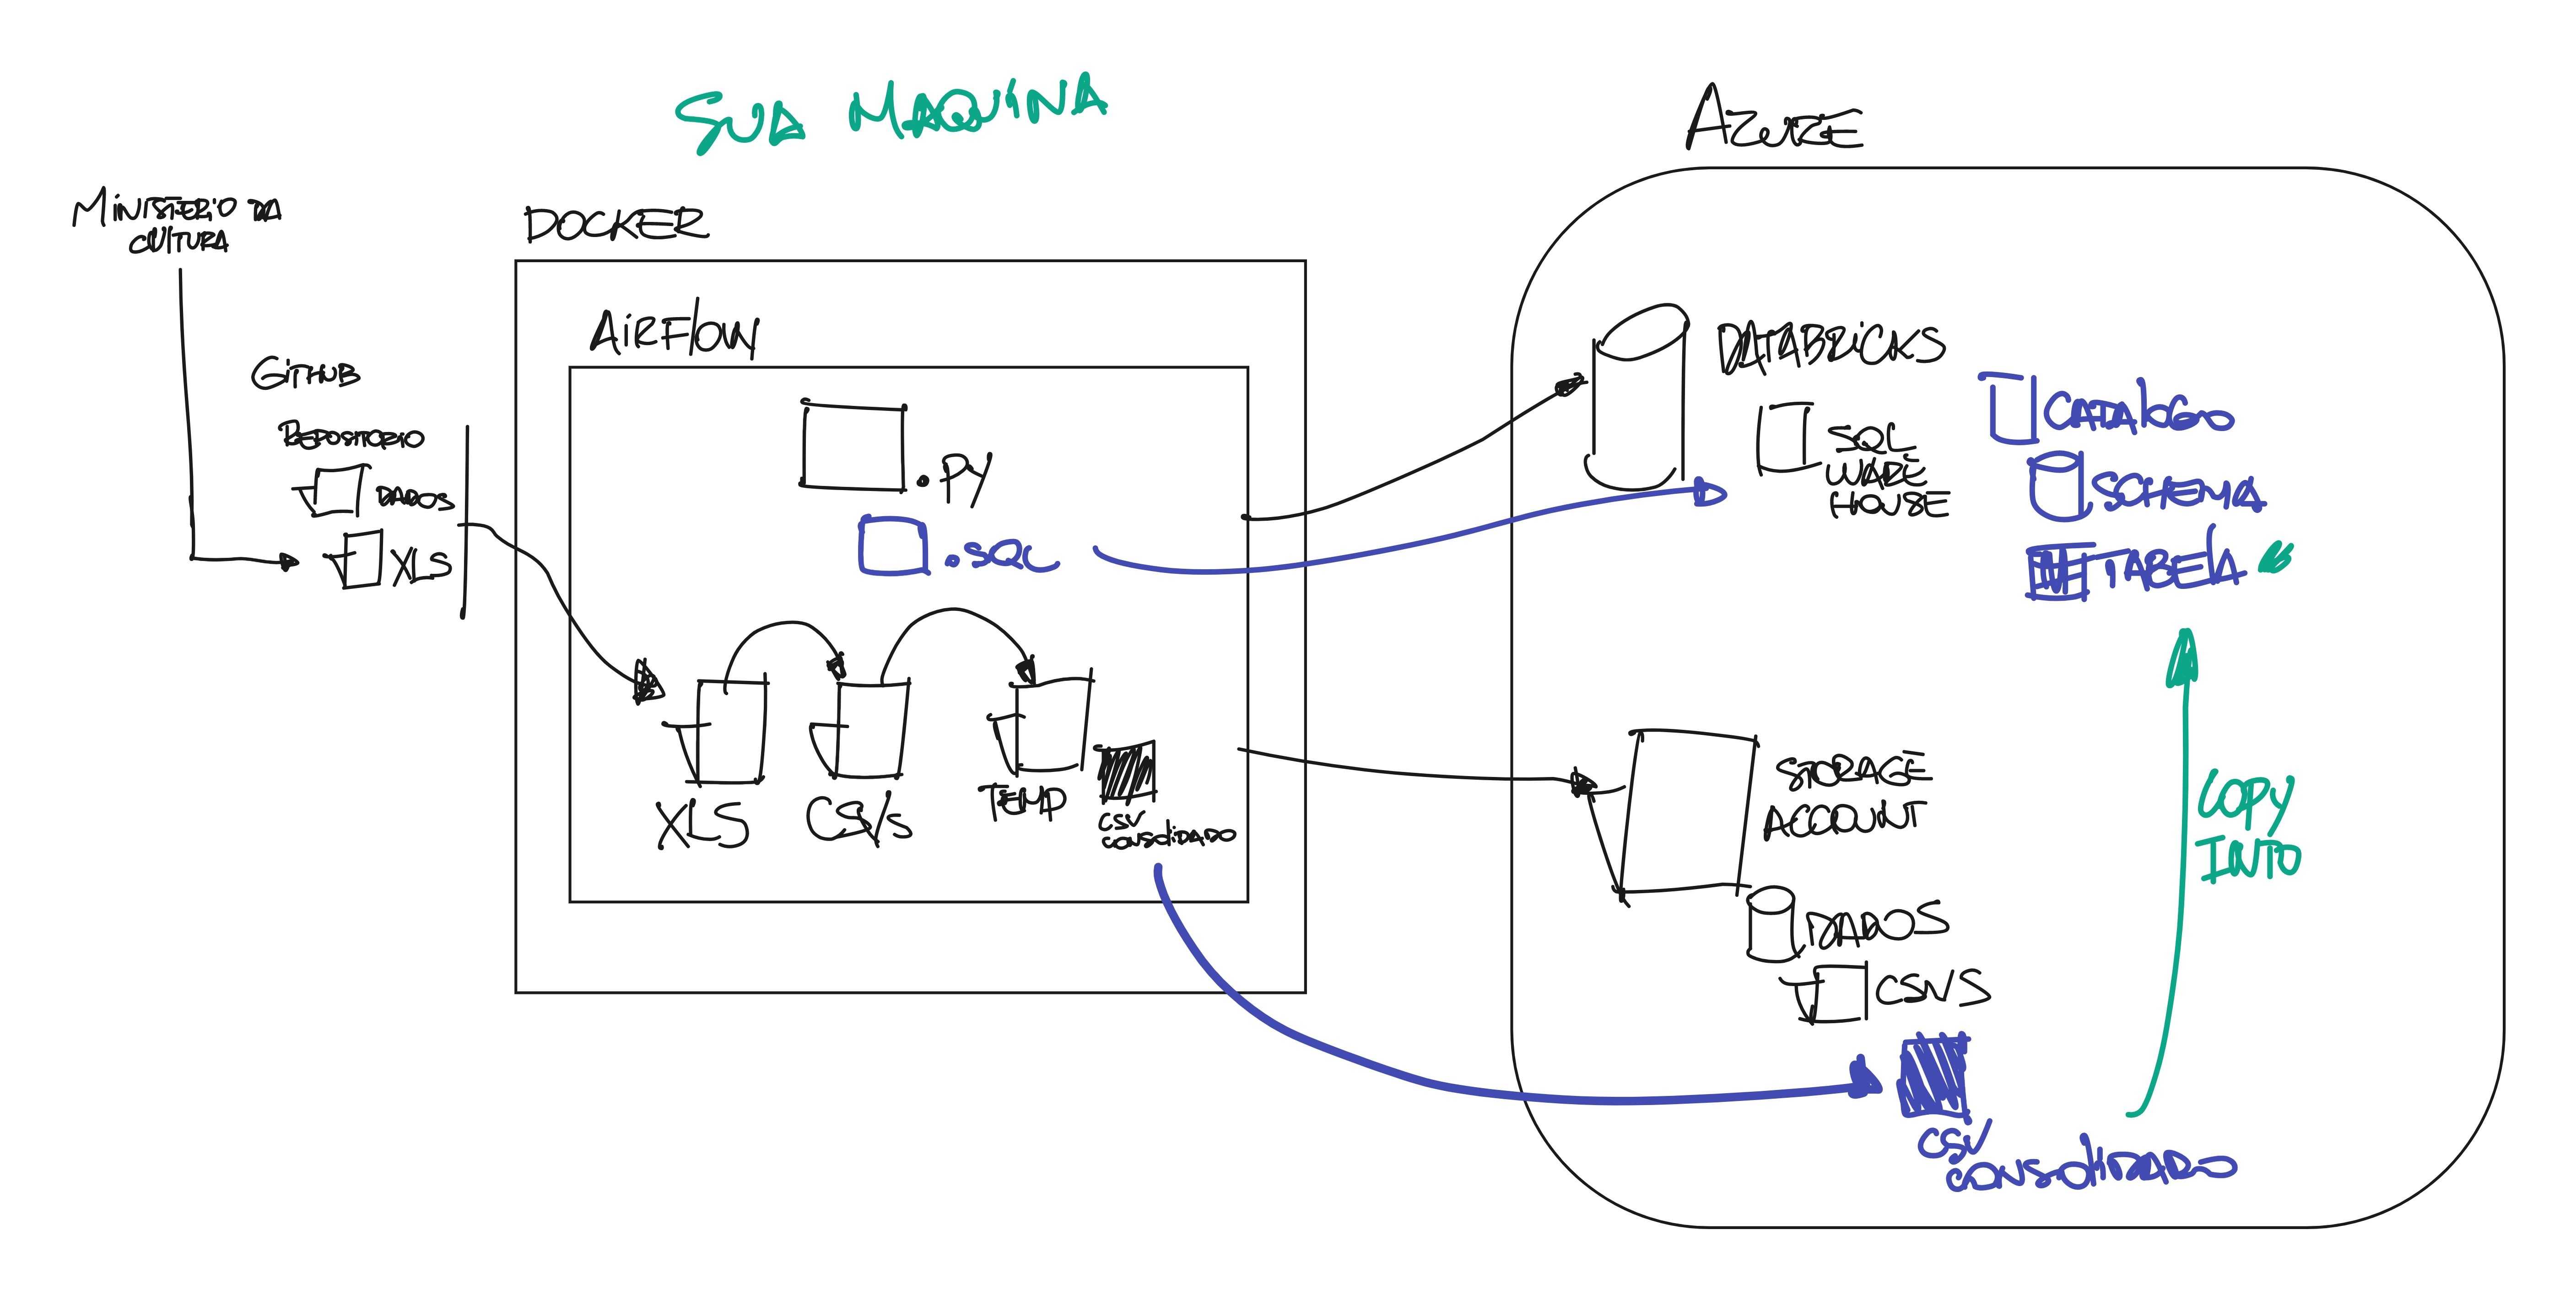 SUA MAQUINA
AZURE
MINISTERIO DA
CULTURA
DOCKER
AIRFLOW
GITHUB
REPOSITORIO
DADOS
XLS
.PY
.SQL
XLS
CSVs
TEMP
CSV
CONSOLIDADO
DATABRICKS
SQL
WARE
HOUSE
CATALOGO
SCHEMA
TABELA
STORAGE
ACCOUNT
DADOS
CSVS
CSV
CONSOLIDADO
COPY
INTO